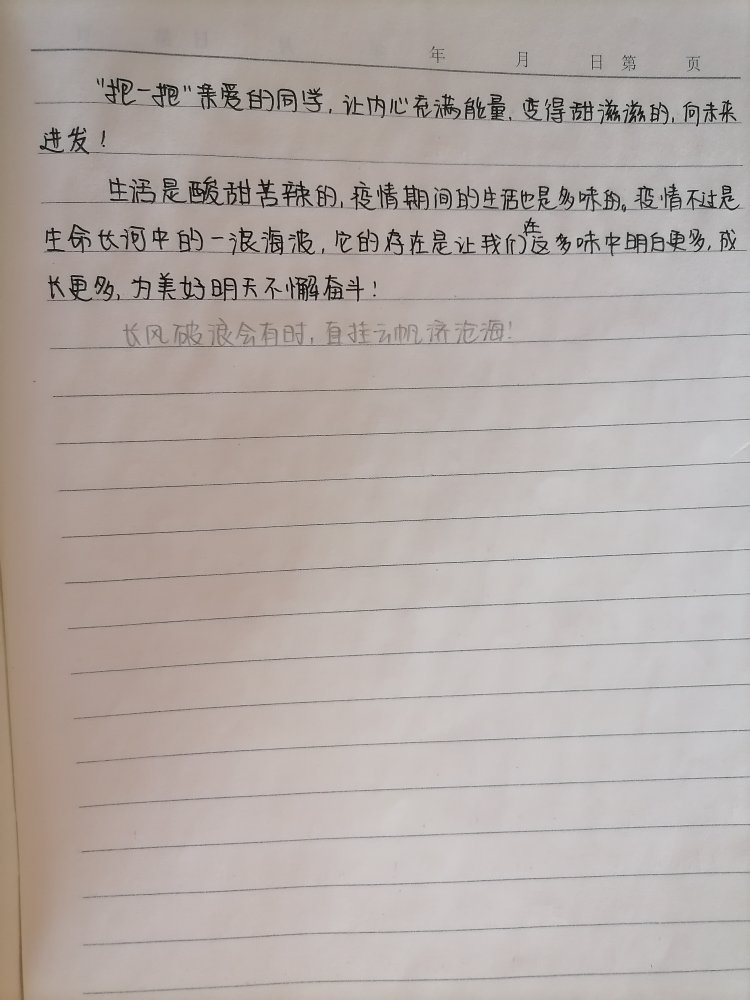 年 月 日 第 页
"抱一抱"亲爱的同学，让内心充满能量，变得甜滋滋的，向未来
进发！
生活是酸甜苦辣的，疫情期间的生活也是多味的。疫情不过是
生命长河中的一浪海波，它的存在是让我们在这多味中明白更多，成
长更多，为美好明天不懈奋斗！
长风破浪会有时，直挂云帆济沧海！